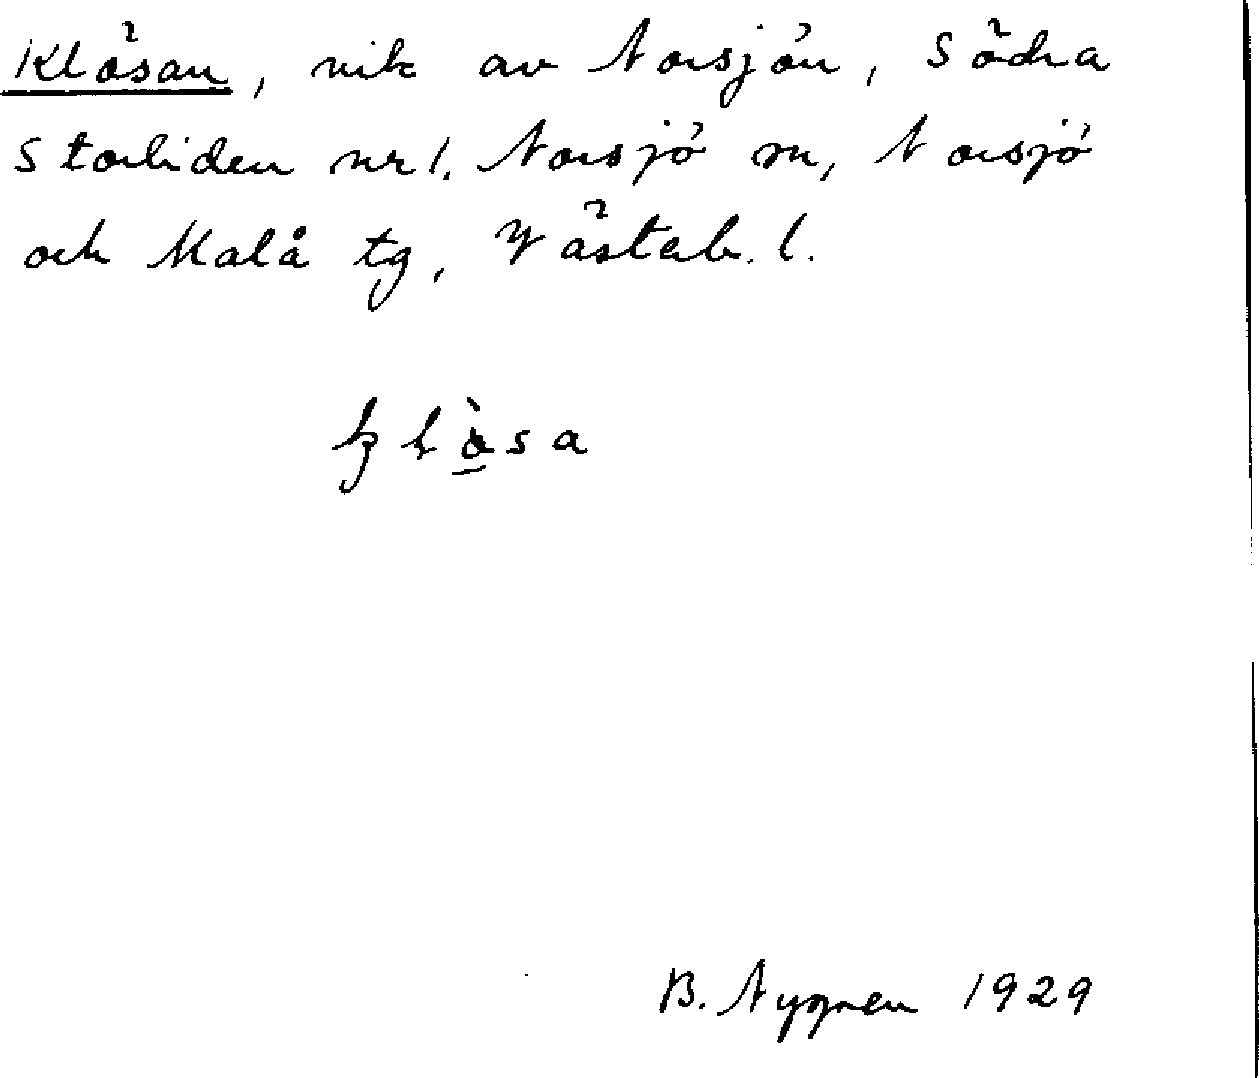 Klösan, vik av Norsjön, Södra
Storliden nr 1. Norsjö sn, Norsjö
och Malå tg, Västerb. l.
B. Nygren 1929